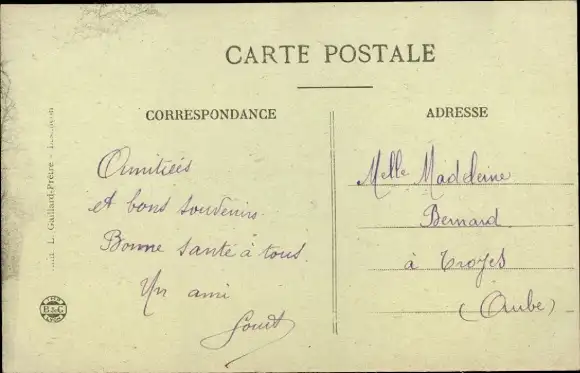 CARTE POSTALE
CORRESPONDANCE
ADRESSE
Amitiés
et bons souvenirs
Bonne santé à tous
Un ami
Melle Madeleine
Bernard
à Troyes
(Aube)
L. Gaillard-Prêtre -
B & G